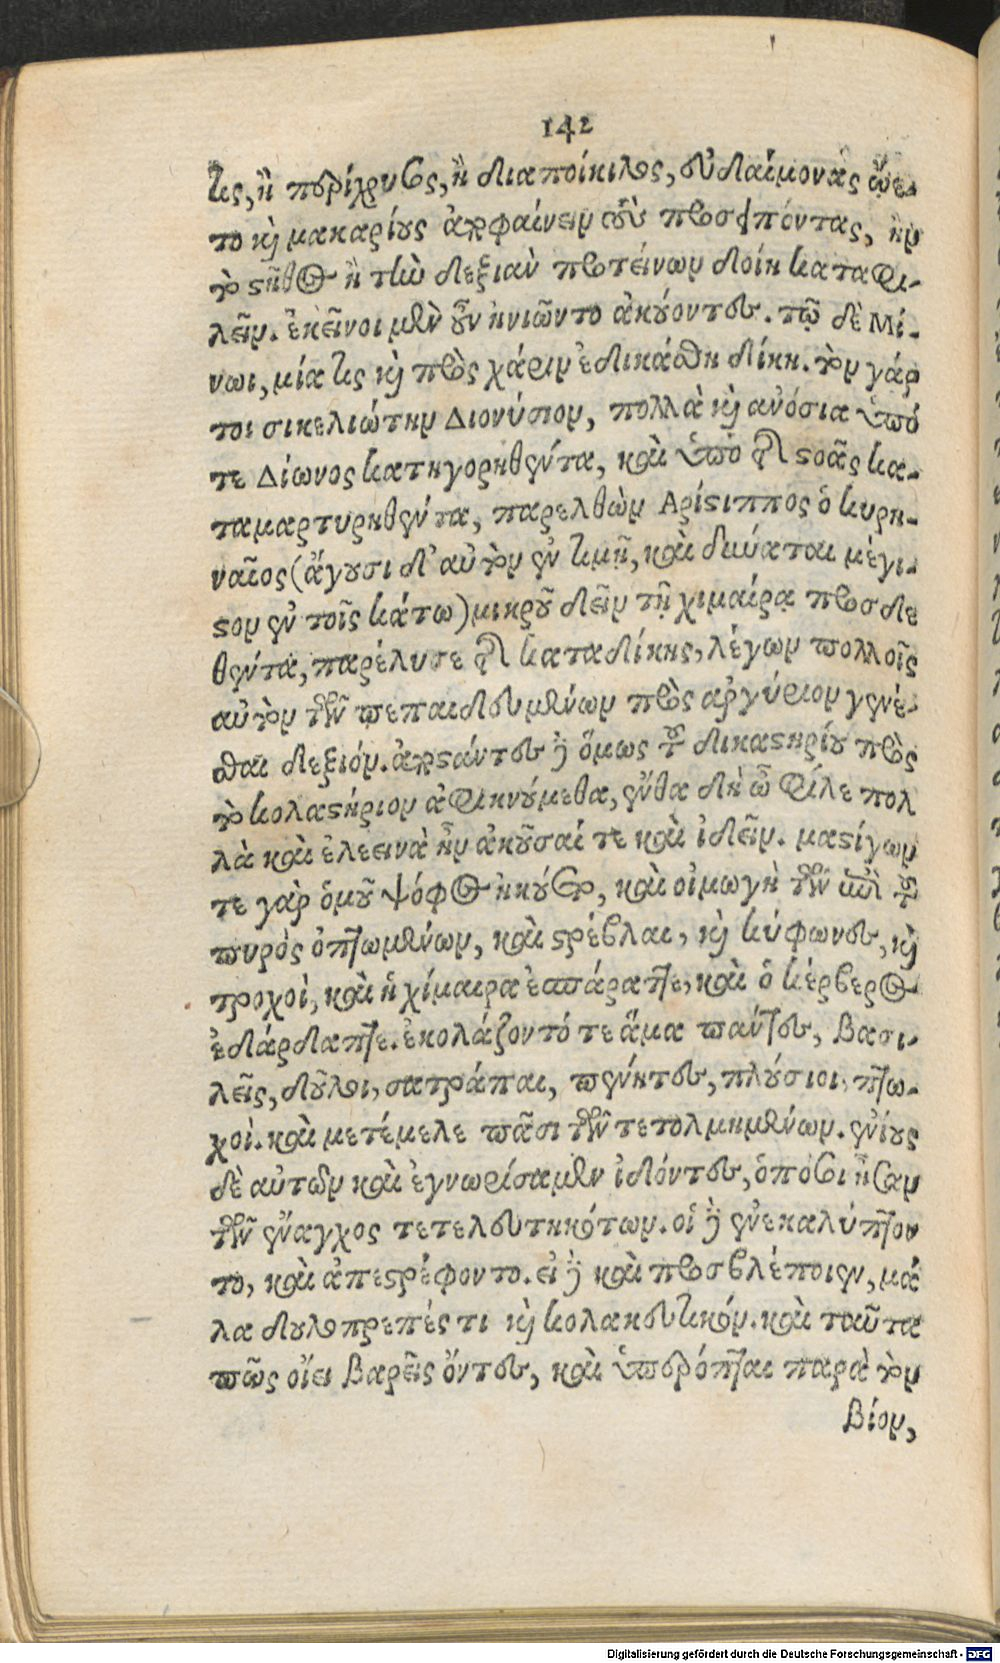 142
τις, ἢ περίχρυσος, ἢ διαποίκιλος, εὐδαίμονας ᾤε-
το καὶ μακαρίους ἀποφαίνειν τοὺς προσειπόντας, ἢν
τὸ στῆθος ἢ τὴν δεξιὰν προτείνων δοίη καταφι-
λεῖν. ἐκεῖνοι μὲν οὖν ἠνιῶντο ἀκούοντες. τῷ δὲ Μί-
νωι, μία τις καὶ πρὸς χάριν ἐδικάσθη δίκη. τὸν γάρ
τοι σικελιώτην Διονύσιον, πολλὰ καὶ ἀνόσια ὑπό
τε Δίωνος κατηγορηθέντα, καὶ ὑπὸ τῆς στοᾶς κα-
ταμαρτυρηθέντα, παρελθὼν Αρίστιππος ὁ κυρη-
ναῖος (ἄγουσι δ' αὐτὸν ἐν τιμῇ, καὶ δύναται μέγι-
στον ἐν τοῖς κάτω) μικροῦ δεῖν τῇ χιμαίρᾳ προσδε
θέντα, παρέλυσε τῆς καταδίκης, λέγων πολλοῖς
αὐτὸν τῶν πεπαιδευμένων πρὸς ἀργύριον γενέ-
σθαι δεξιόν. ἀποστάντες δὲ ὅμως τοῦ δικαστηρίου πρὸς
τὸ κολαστήριον ἀφικνούμεθα, ἔνθα δὴ ὦ φίλε πολ
λὰ καὶ ἐλεεινὰ ἦν ἀκοῦσαί τε καὶ ἰδεῖν. μαστίγων
τε γὰρ ὁμοῦ ψόφος ἠκούετο, καὶ οἰμωγὴ τῶν ἐπὶ τοῦ
πυρὸς ὀπτωμένων, καὶ στρέβλαι, καὶ κύφωνες, καὶ
τροχοὶ, καὶ ἡ χίμαιρα ἐσπάραττε, καὶ ὁ κέρβερος
ἐδάρδαπτε. ἐκολάζοντό τε ἅμα πάντες, βασι-
λεῖς, δοῦλοι, σατράπαι, πένητες, πλούσιοι, πτω-
χοὶ. καὶ μετέμελε πᾶσι τῶν τετολμημένων. ἐνίους
δὲ αὐτῶν καὶ ἐγνωρίσαμεν ἰδόντες, ὁπόσοι ἦσαν
τῶν ἔναγχος τετελευτηκότων. οἱ δὲ ἐνεκαλύπτον
το, καὶ ἀπεστρέφοντο. εἰ δὲ καὶ προσβλέποιεν, μά
λα δουλοπρεπές τι καὶ κολακευτικόν. καὶ ταῦτα
πῶς οἴει βαρεῖς ὄντες, καὶ ὑπερόπται παρὰ τὸν
βίον,
Digitalisierung gefördert durch die Deutsche Forschungsgemeinschaft - DFG